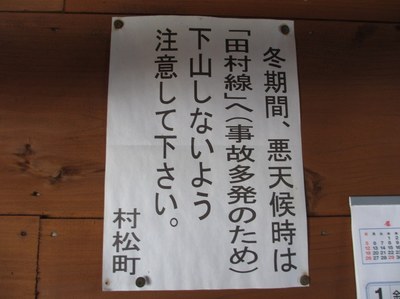 冬期間、悪天候時は
「田村線」へ(事故多発のため)
下山しないよう
注意して下さい。
村松町